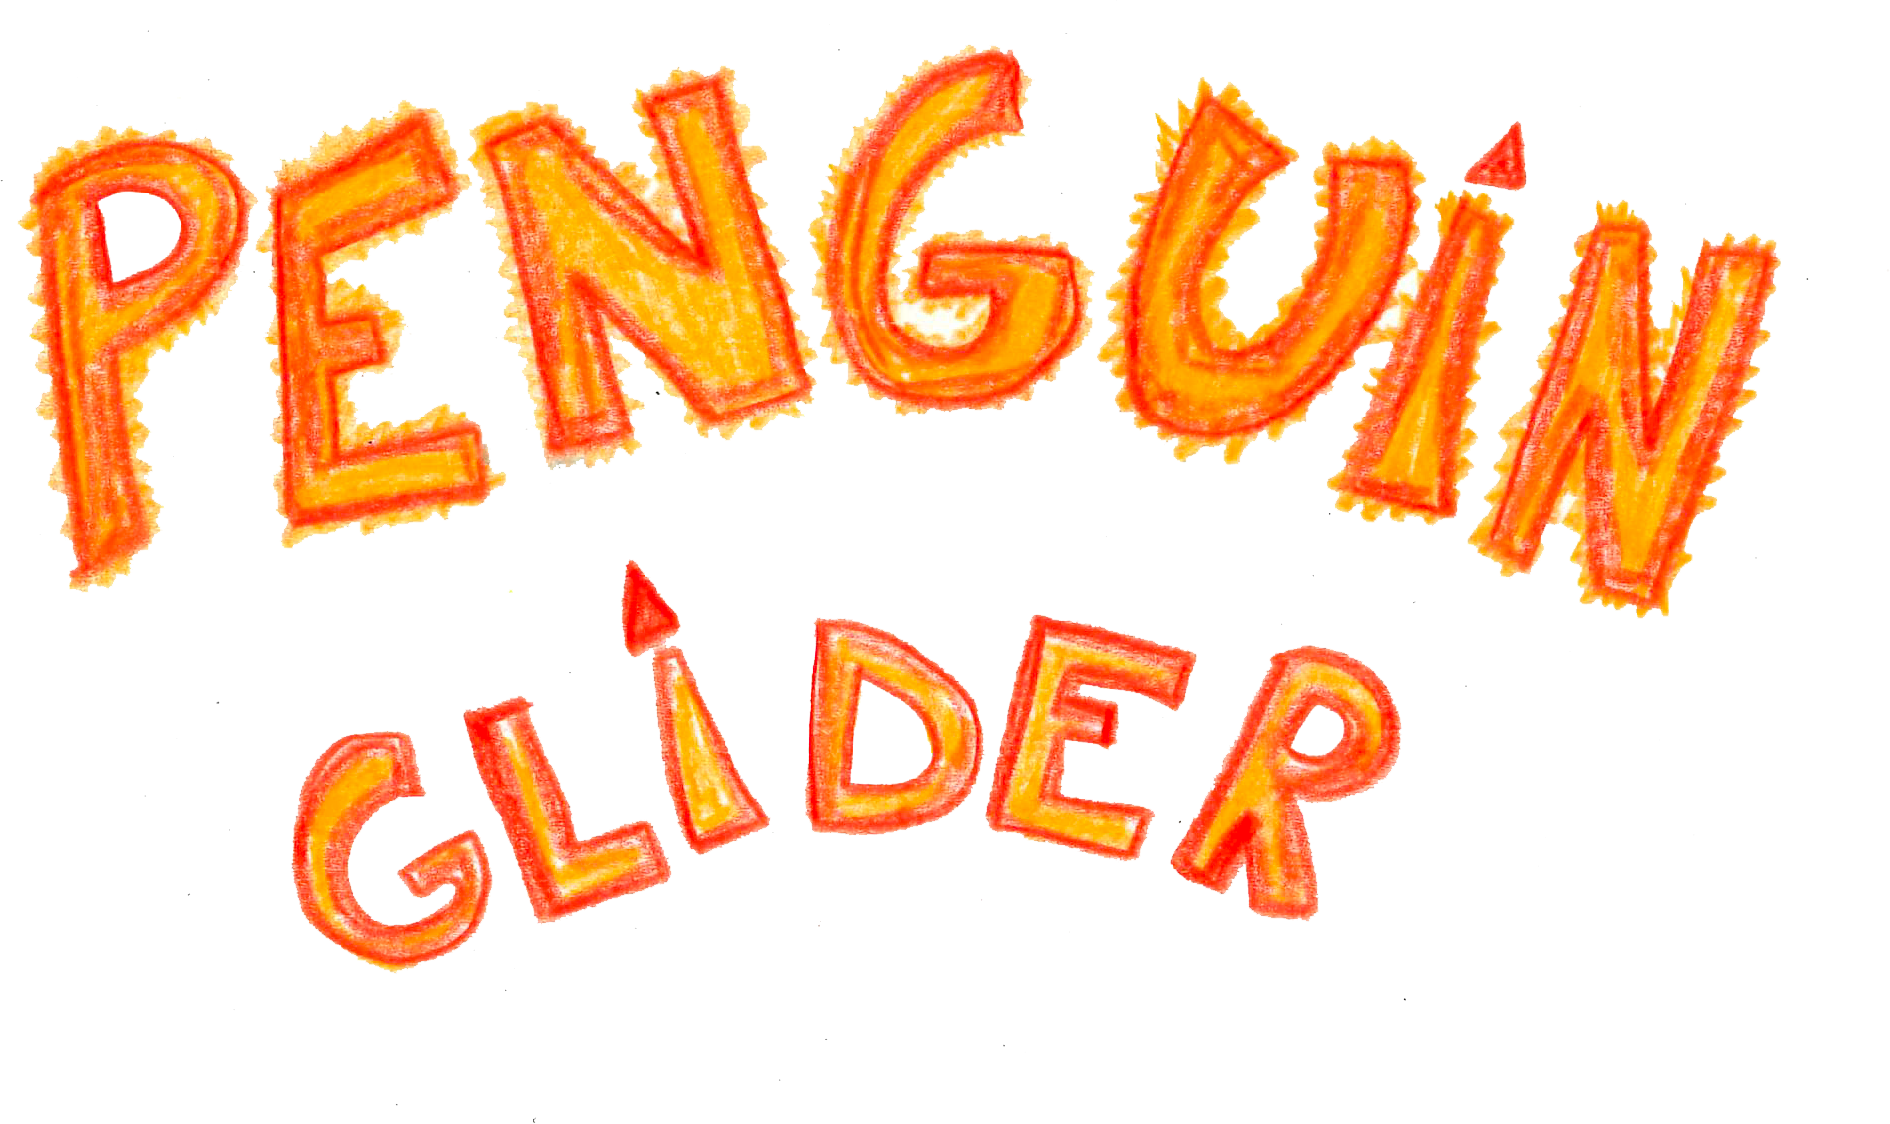 PENGUiN
GLiDER